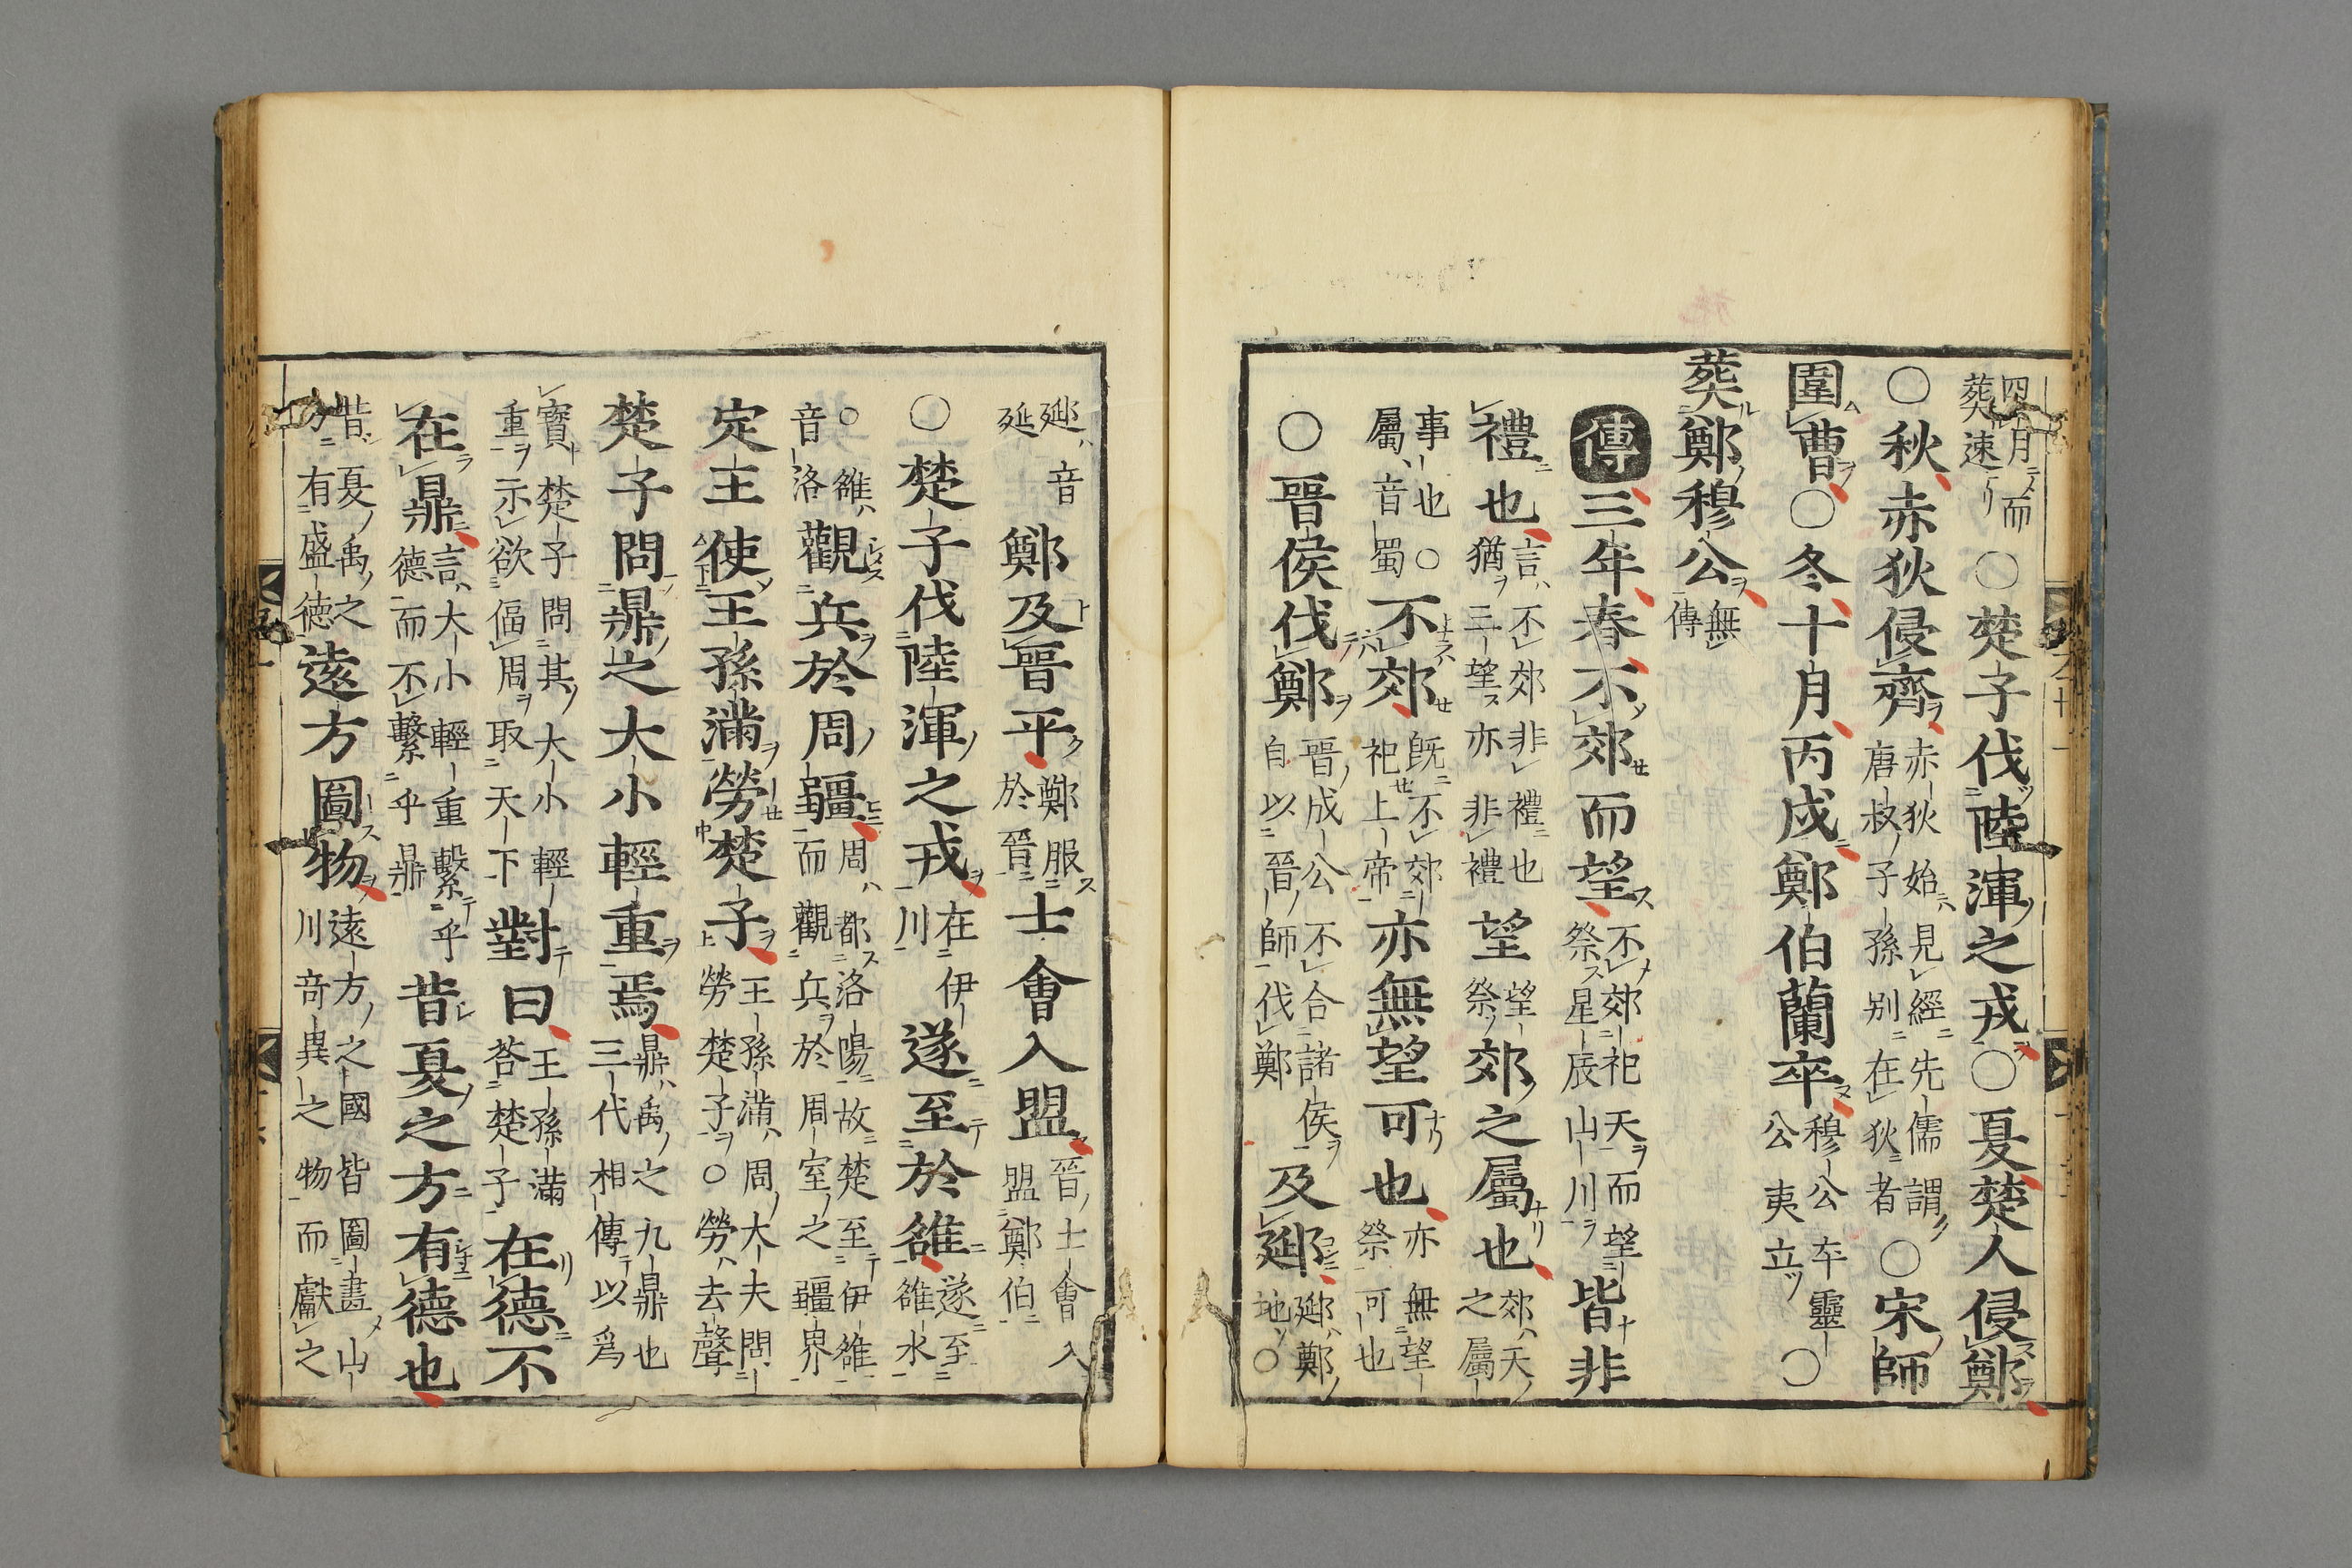 四月而葬速○楚子伐陸渾之戎○夏楚人侵鄭
○秋赤狄侵齊赤狄始見經先儒謂唐叔子孫别在狄者○宋師
圍曹○冬十月丙戌鄭伯蘭卒穆公卒靈公夷立○
葬鄭穆公無傳
傳三年春不郊而望不郊祀天而望祭星辰山川皆非
禮也言不郊非禮也猶三望亦非禮望望祭郊之屬也郊天之屬
事也○屬音蜀不郊既不郊祀上帝亦無望可也亦無望祭可也
○晉侯伐鄭晉成公不合諸侯自以晉師伐鄭及郔郔鄭地○
郔音延鄭及晉平鄭服於晉士會入盟晉士會入盟鄭伯
○楚子伐陸渾之戎在伊川遂至於雒遂至雒水
○雒音洛觀兵於周疆周都洛陽故楚至伊雒而觀兵於周室之疆界
定王使王孫滿勞楚子王孫滿周大夫問勞楚子○勞去聲
楚子問鼎之大小輕重焉鼎禹之九鼎也三代相傳以爲
寶楚子問其大小輕重示欲偪周取天下對曰王孫滿荅楚子在德不
在鼎言大小輕重繫乎德而不繫乎鼎昔夏之方有德也
昔夏禹之方有盛德遠方圖物遠方之國皆圖畫山川竒異之物而獻之